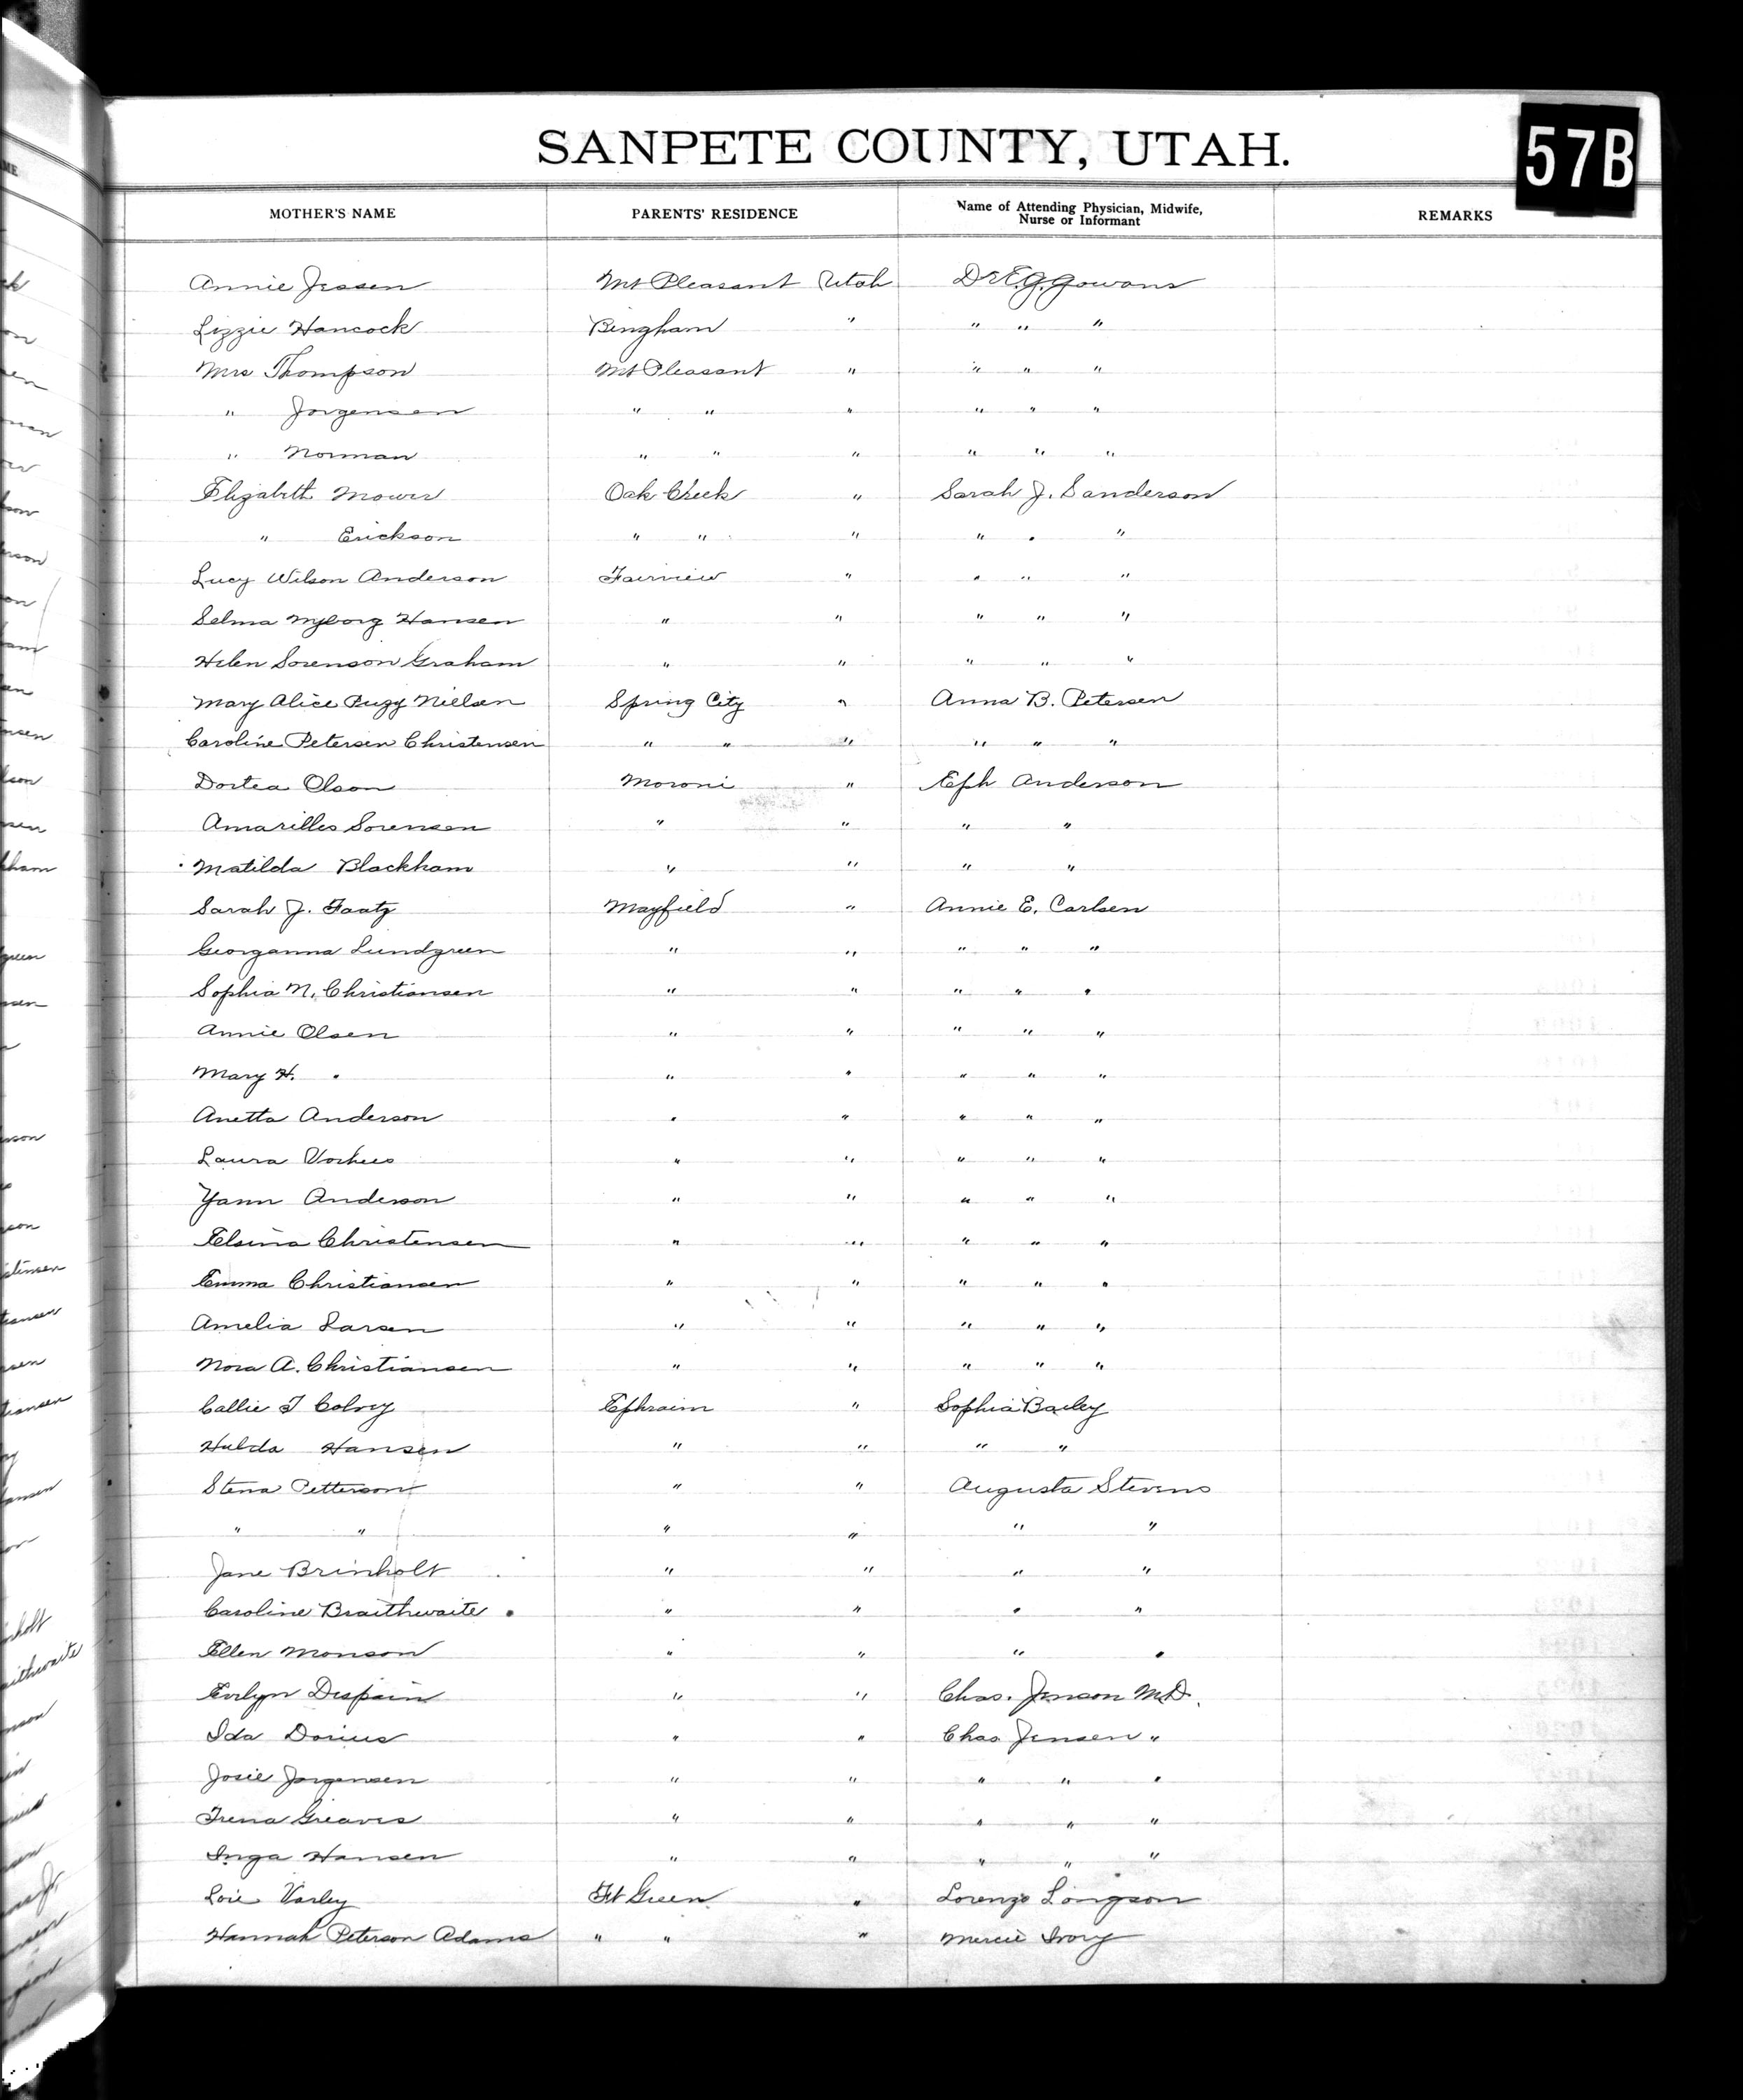 SANPETE COUNTY, UTAH. 57B
MOTHER'S NAME PARENTS' RESIDENCE Name of Attending Physician, Midwife, Nurse or Informant REMARKS
Annie Jessen Mt Pleasant Utah Dr E.G. Gowans
Lizzie Hancock Bingham " " " "
Mrs Thompson Mt Pleasant " " " "
" Jorgensen " " " " " "
" Norman " " " " " "
Elizabeth Mower Oak Creek " Sarah J. Sanderson
" Erickson " " " " " "
Lucy Wilson Anderson Fairview " " " "
Selma Nyborg Hansen " " " " "
Helen Sorenson Graham " " " " "
Mary Alice Pugy Nielsen Spring City " Anna B. Petersen
Caroline Petersen Christensen " " " " " "
Dortea Olson Moroni " Eph Anderson
Amarilles Sorensen " " " "
Matilda Blackham " " " "
Sarah J. Faatz Mayfield " Annie E. Carlsen
Georganna Lundgreen " " " " "
Sophia N. Christiansen " " " " "
Annie Olsen " " " " "
Mary H. " " " " " "
Anetta Anderson " " " " "
Laura Vorhees " " " " "
Yann Anderson " " " " "
Elsina Christensen " " " " "
Emma Christiansen " " " " "
Amelia Larsen " " " " "
Nora A. Christiansen " " " " "
Callie T Ephraim " Sophia Bailey
Hulda Hansen " " " "
Stena Petterson " " Augusta Stevens
" " " " " "
Jane Brinholt " " " "
Caroline Braithwaite " " " "
Ellen Monson " " " "
Evelyn Despain " " Chas. Jenson M.D.
Ida Dorius " " Chas Jensen "
Josie Jorgensen " " " " "
Trena Greaves " " " " "
Inga Hansen " " " " "
Loie Varley Ft Green " Lorenzo Longson
Hannah Peterson Adams " " " Mercie Ivory